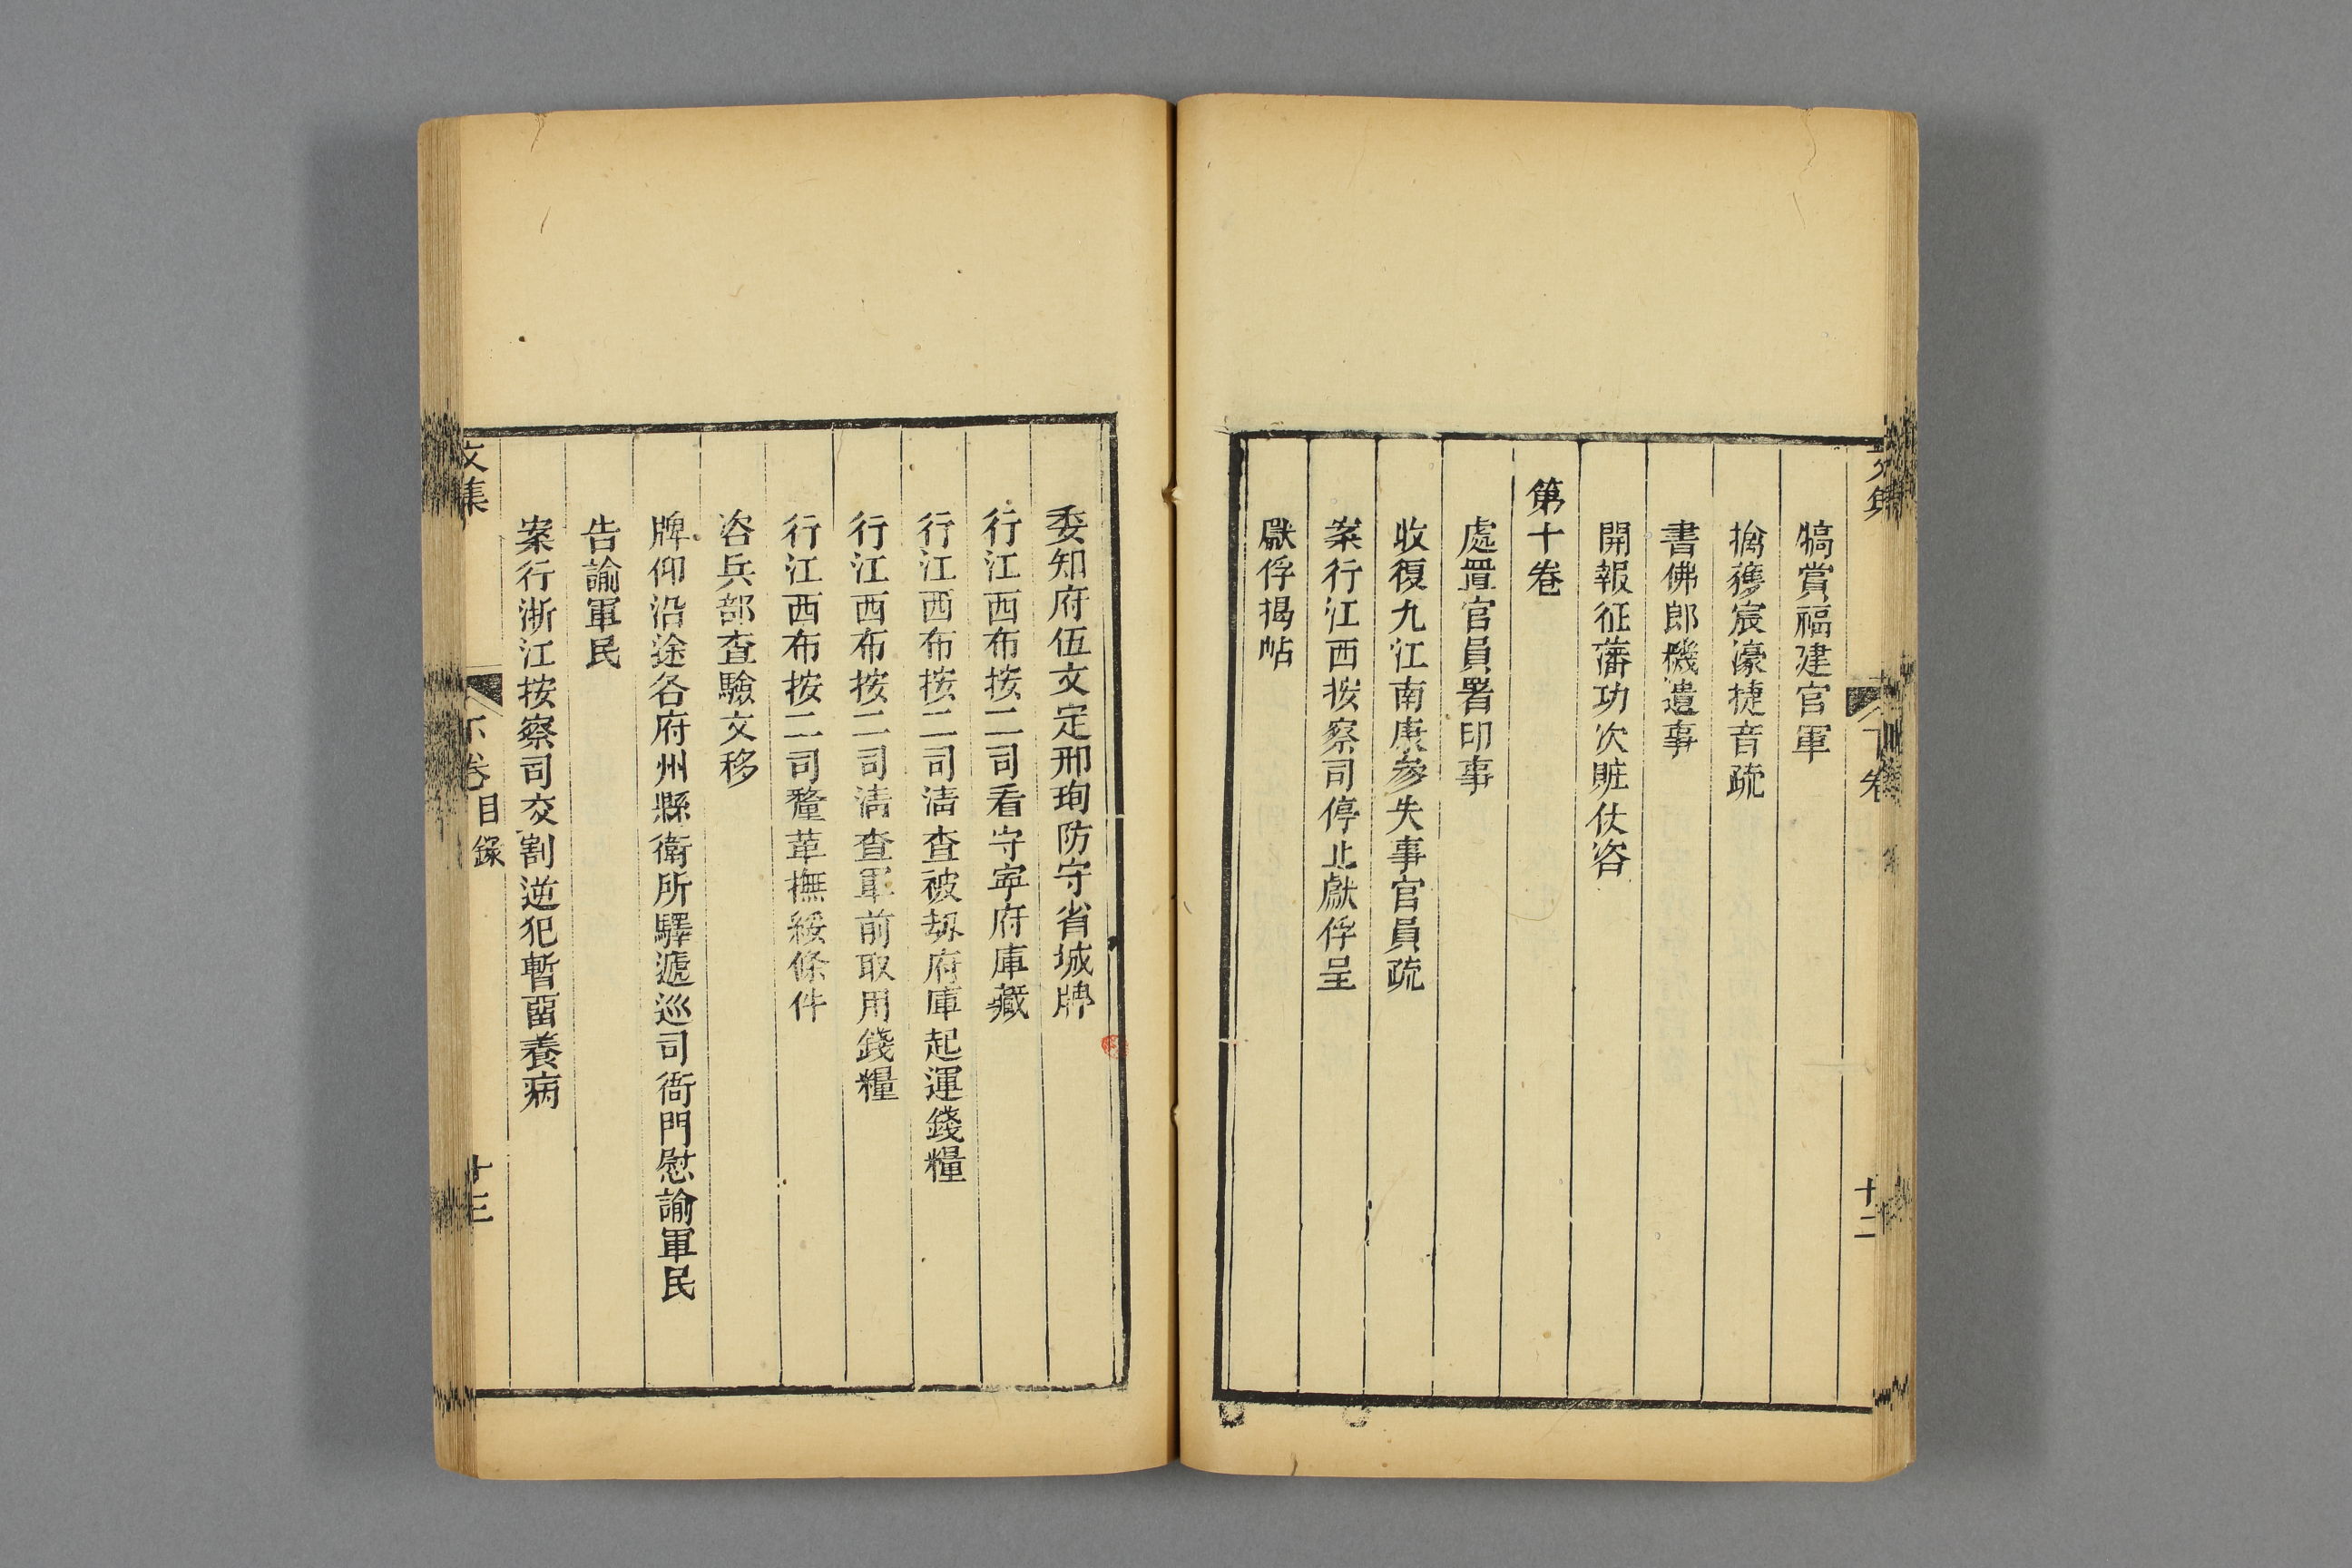 犒賞福建官軍
擒獲宸濠捷音疏
書佛郎機遺事
開報征藩功次賍仗咨
第十卷
處置官員署印事
收復九江南康參失事官員疏
案行江西按察司停止獻俘呈
獻俘揭帖
委知府伍文定邢珣防守省城牌
行江西布按二司看守寧府庫藏
行江西布按二司清查被刼府庫起運錢糧
行江西布按二司清查軍前取用錢糧
行江西布按二司釐革撫綏條件
咨兵部查驗文移
牌仰沿途各府州縣衛所驛遞巡司衙門慰諭軍民
告諭軍民
案行浙江按察司交割逆犯暫畱養病
文集
下卷目錄
十三